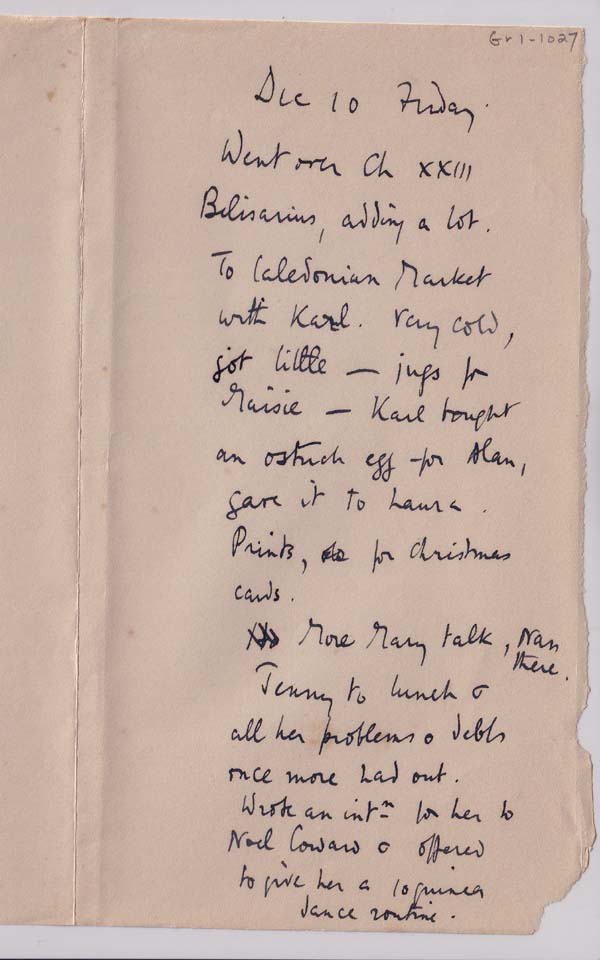 Gr1-1027
Dec 10 Friday.
Went over Ch XXIII
Belisarius, adding a lot.
To Caledonian Market
with Karl. Very cold,
got little — jugs for
Maisie — Karl bought
an ostrich egg for Alan,
gave it to Laura.
Prints, for Christmas
cards.
More Mary talk, Nan
there.
Jenny to lunch &
all her problems & debts
once more had out.
Wrote an intn for her to
Noel Coward & offered
to give her a 10 guinea
dance routine.